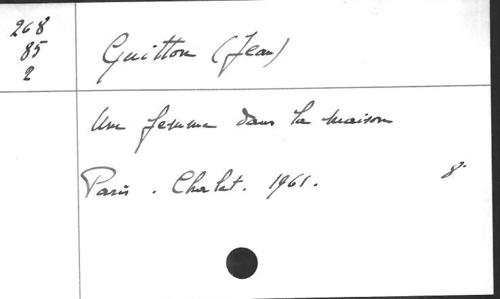 268
85
2
Guitton (Jean)
Une femme dans la maison
Paris. Chalet. 1961.
8°